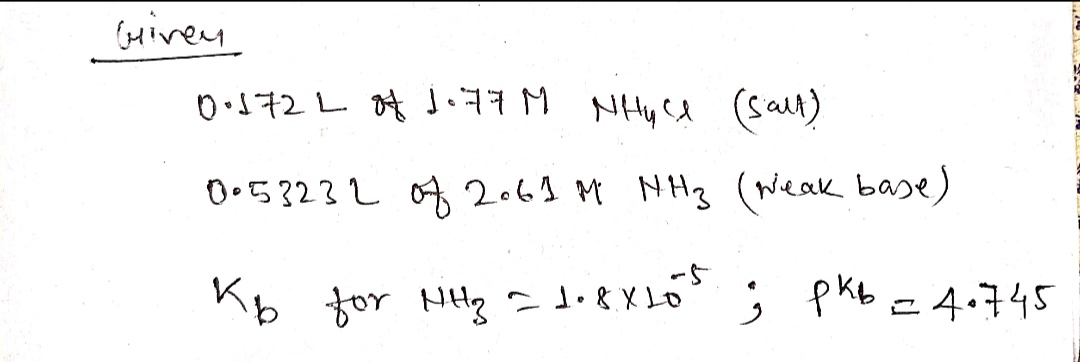 Given
0.172 L of 1.77 M NH4Cl (salt)
0.5323 L of 2.61 M NH3 (weak base)
Kb for NH3 = 1.8 X 10^-5 ; pKb = 4.745